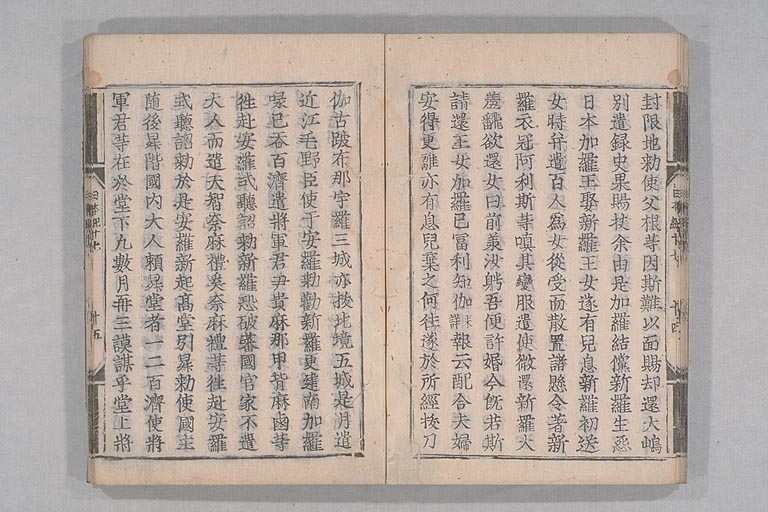 封限地勅使父根等因斯難以面賜却還大嶋
別遣録史果賜扶余由是加羅結儻新羅生怨
日本加羅王娶新羅王女遂有兒息新羅初送
女時并遣百人爲女從受而散置諸縣令著新
羅衣冠阿利斯等嗔其變服遣使徴還新羅大
羞飜欲還女曰前承汝聘吾便許婚今既若斯
請還王女加羅己富利知伽未詳報云配合夫婦
安得更離亦有息兒棄之何往遂於所經拔刀
伽古跛布那牟羅三城亦拔北境五城是月遣
近江毛野臣使于安羅勅勸新羅更建南加羅
喙己吞百濟遣將軍君尹貴麻那甲背麻鹵等
往赴安羅式聽詔勅新羅恐破蕃國官家不遣
大人而遣夫智奈麻禮奚奈麻禮等往赴安羅
式聽詔勅於是安羅新起高堂引昇勅使國主
随後昇階國内大人頼昇堂者一二百濟使將
軍君等在於堂下凡數月再三謨謀乎堂上將